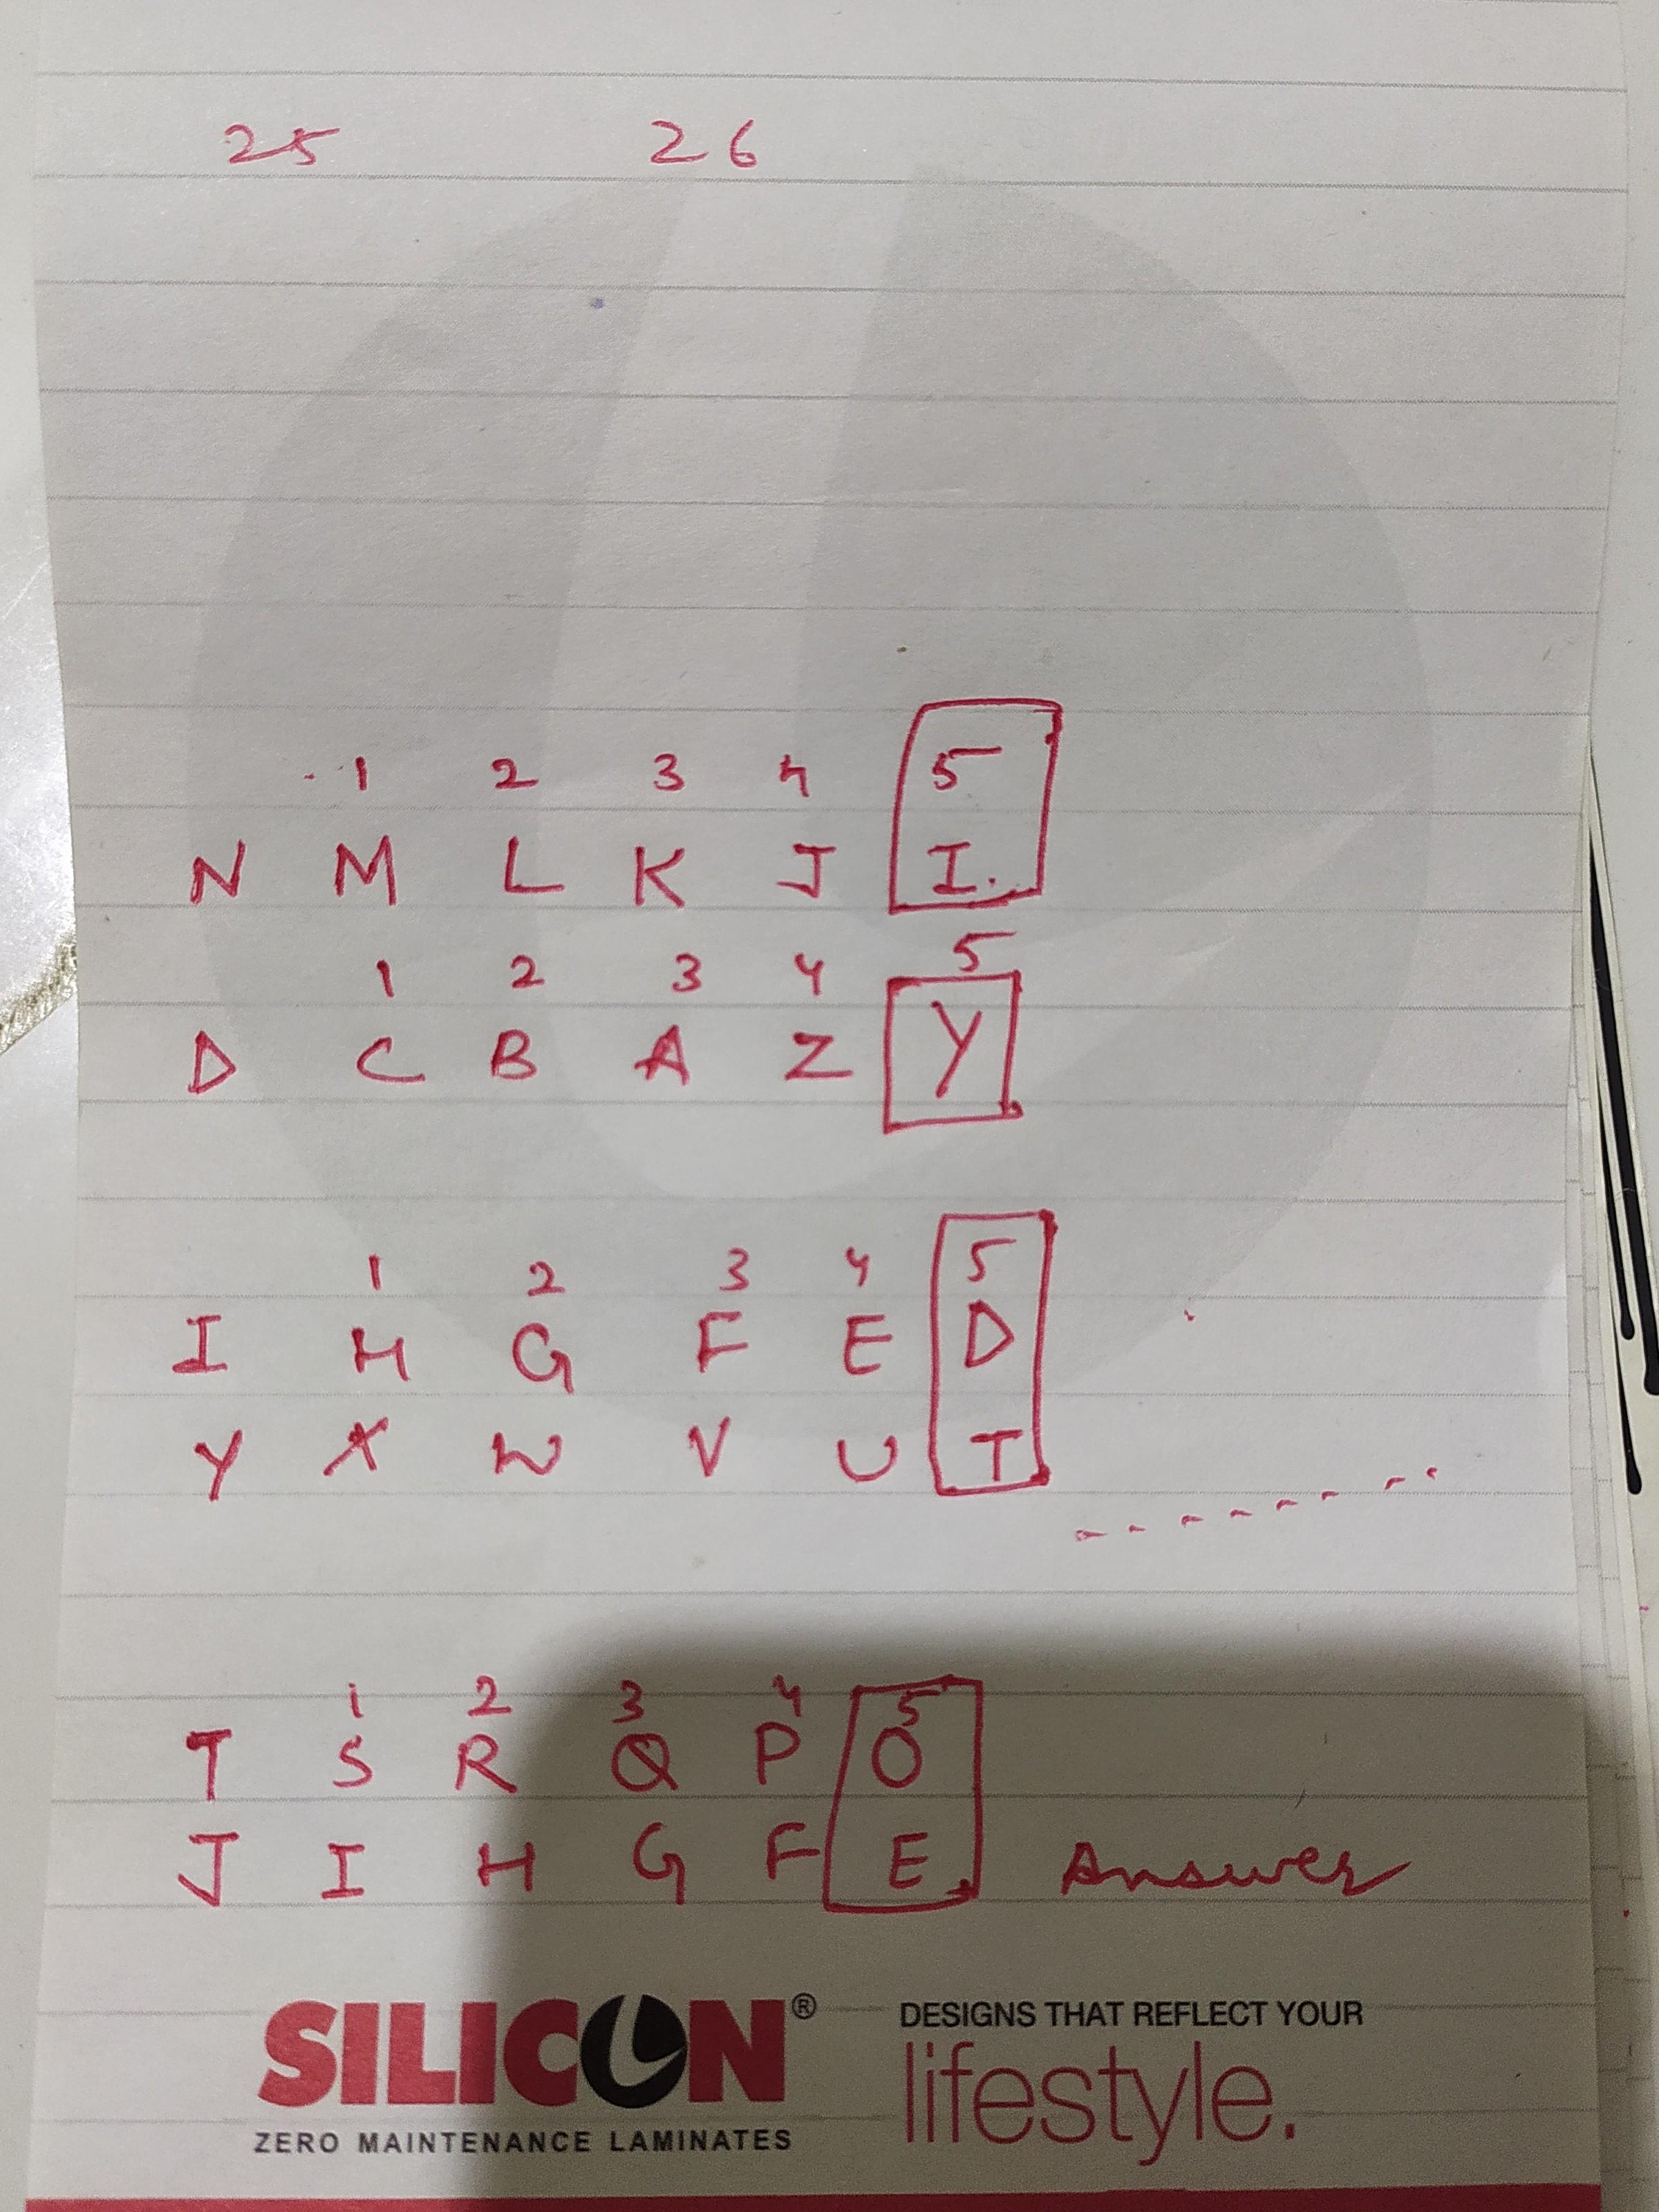 25 26
1 2 3 4 5
N M L K J I.
1 2 3 4 5
D C B A Z Y
1 2 3 4 5
I H G F E D
Y X W V U T
1 2 3 4 5
T S R Q P O
J I H G F E Answer
SILICON® DESIGNS THAT REFLECT YOUR
lifestyle.
ZERO MAINTENANCE LAMINATES